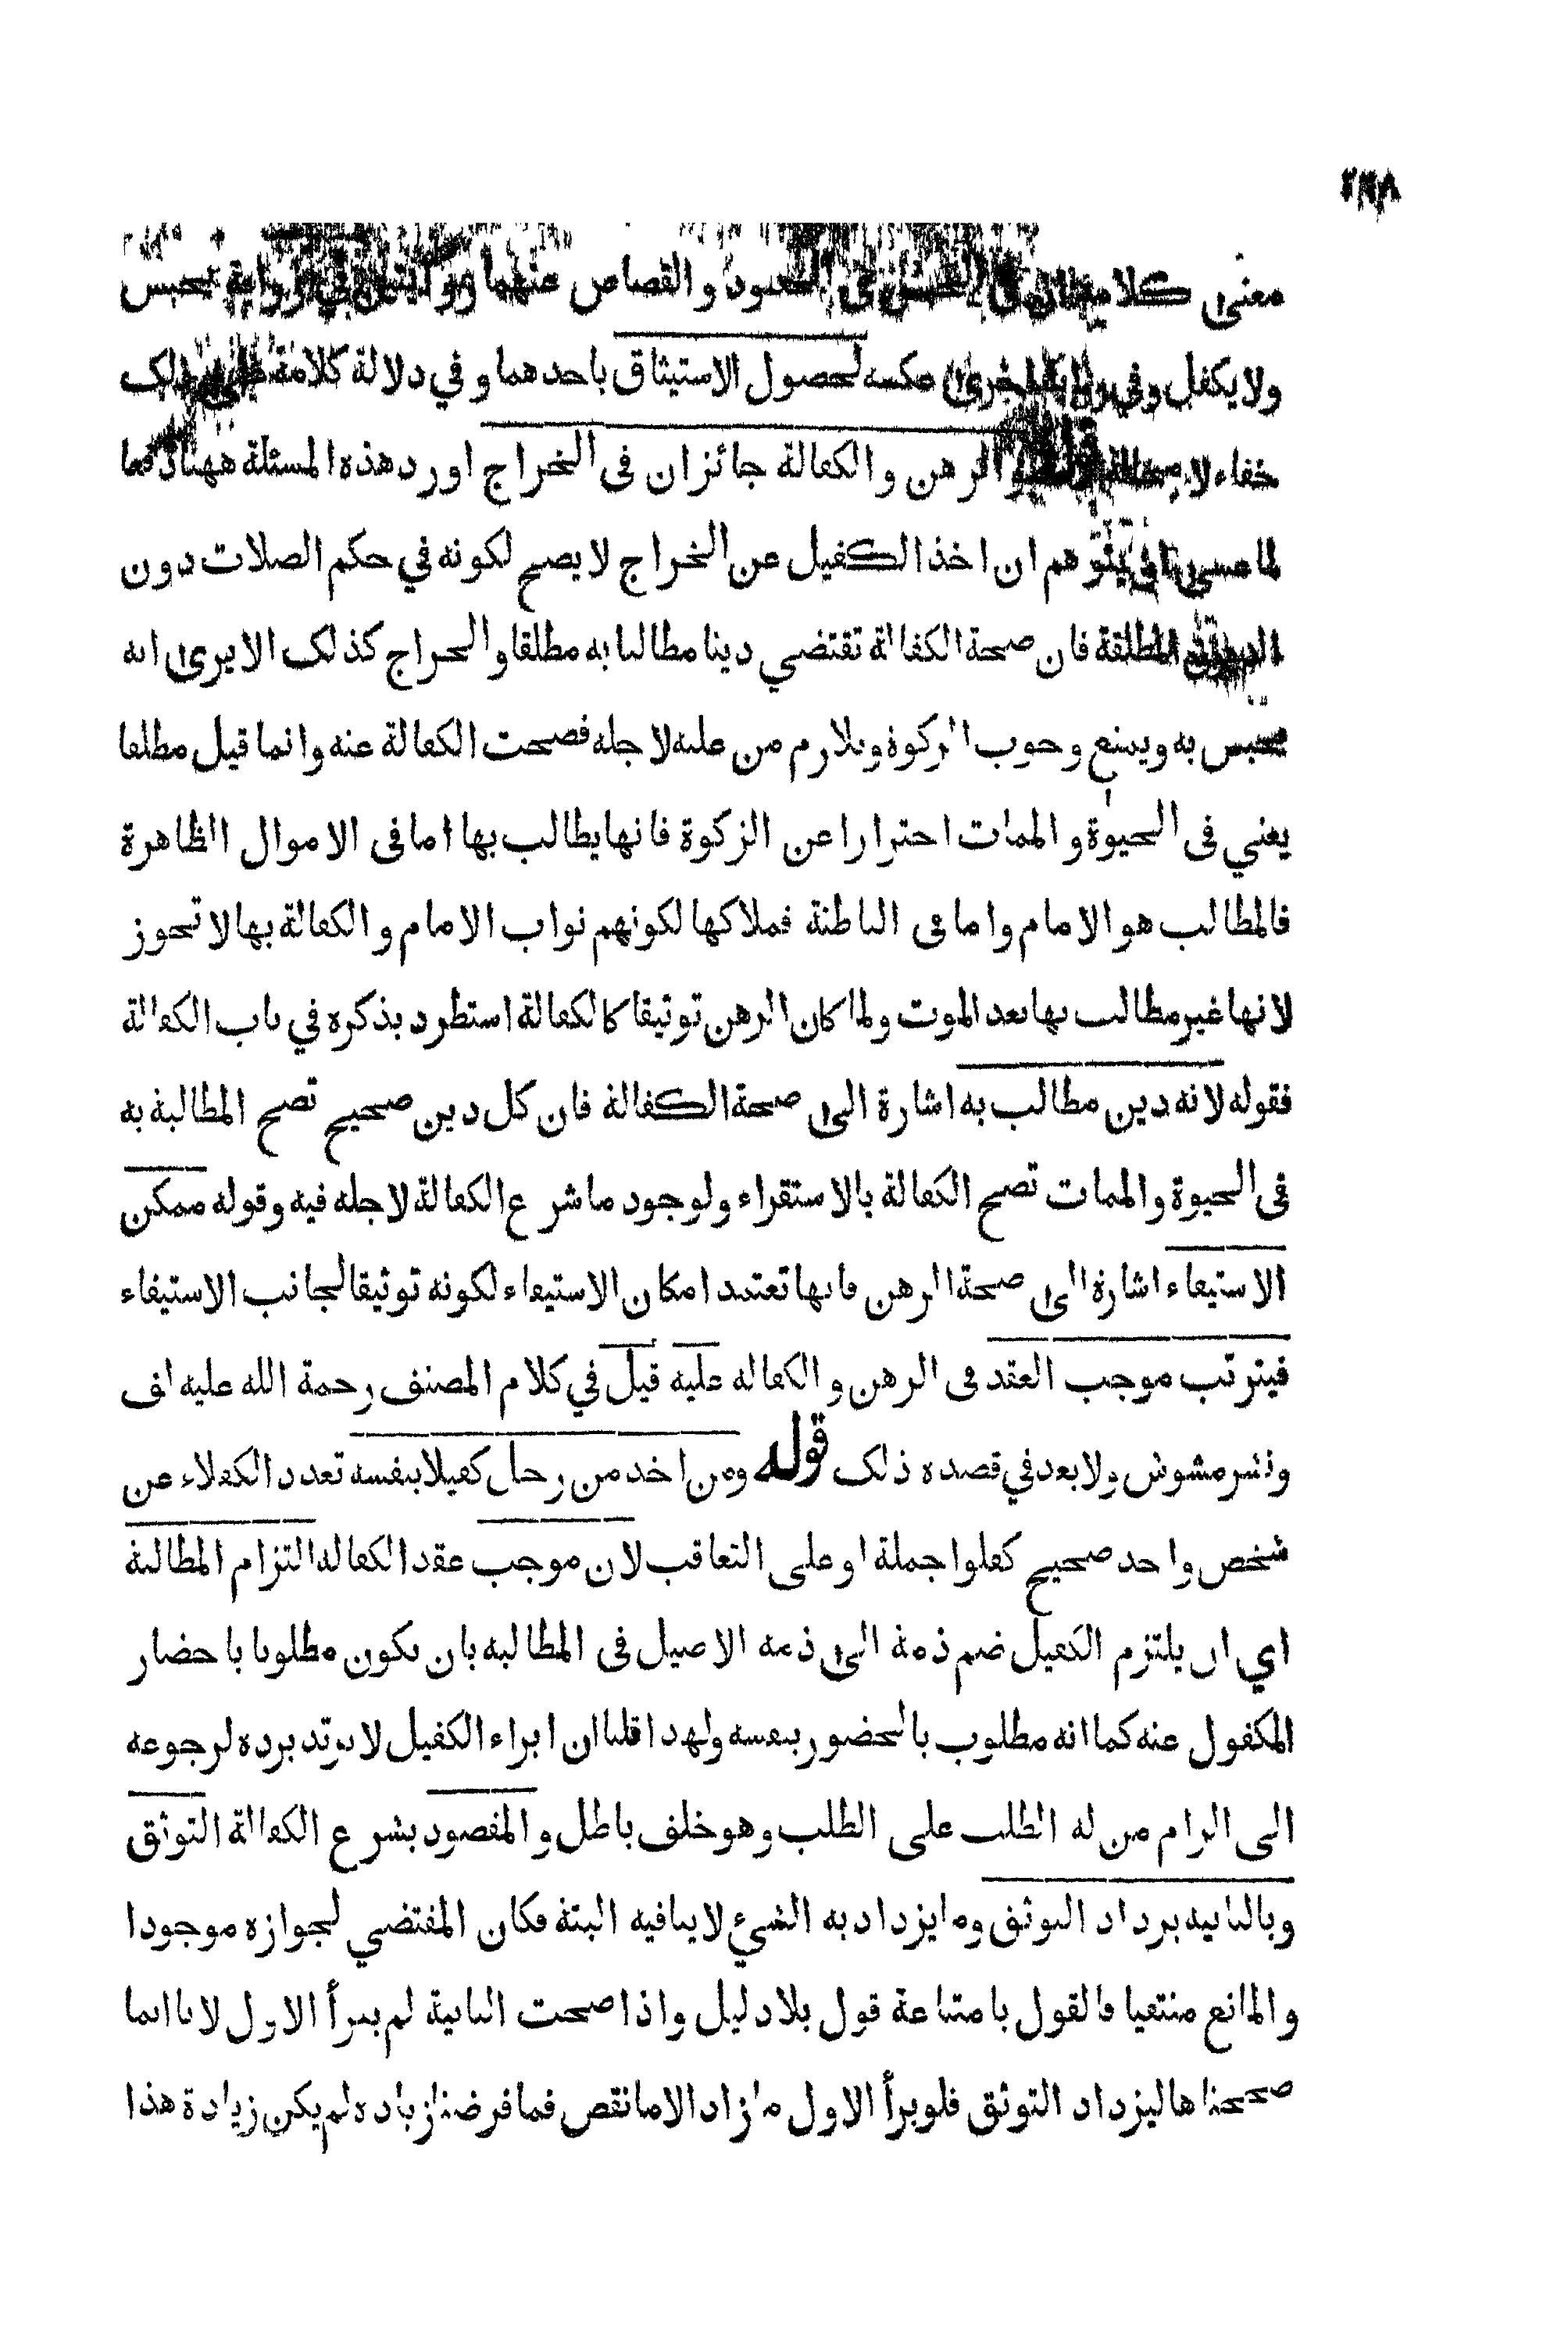 معنى كلامه في الحدود والقصاص عنهما رواية يحبس
ولا يكفل وفي رواية اخرى عكسه لحصول الاستيثاق باحدهما وفي دلالة كلامه على ذلك
خفاء لا محالة والرهن والكفالة جائزان فى الخراج اورد هذه المسئلة ههنا دفعا
لما عسى ان يتوهم ان اخذ الكفيل عن الخراج لا يصح لكونه في حكم الصلات دون
الديون المطلقة فان صحة الكفالة تقتضي دينا مطالبا به مطلقا والخراج كذلك الا يرى انه
يحبس به ويمنع وجوب الزكوة ويلازم من عليه لاجله فصحت الكفالة عنه وانما قيل مطلقا
يعني فى الحيوة والممات احترازا عن الزكوة فانها يطالب بها اما فى الاموال الظاهرة
فالمطالب هو الامام واما فى الباطنة فملاكها لكونهم نواب الامام والكفالة بها لا تجوز
لانها غير مطالب بها بعد الموت ولما كان الرهن توثيقا كالكفالة استطرد بذكره في باب الكفالة
فقوله لانه دين مطالب به اشارة الى صحة الكفالة فان كل دين صحيح تصح المطالبة به
فى الحيوة والممات تصح الكفالة بالاستقراء ولوجود ما شرع الكفالة لاجله فيه وقوله ممكن
الاستيفاء اشارة الى صحة الرهن فانها تعتمد امكان الاستيفاء لكونه توثيقا لجانب الاستيفاء
فيترتب موجب العقد فى الرهن والكفاله عليه قيل في كلام المصنف رحمة الله عليه لف
ونشر مشوش ولا بعد في قصده ذلك قوله ومن اخذ من رجل كفيلا بنفسه تعدد الكفلاء عن
شخص واحد صحيح كفلوا جملة او على التعاقب لان موجب عقد الكفاله التزام المطالبة
اي ان يلتزم الكفيل ضم ذمة الى ذمة الاصيل فى المطالبه بان يكون مطلوبا باحضار
المكفول عنه كما انه مطلوب بالحضور بنفسه ولهذا قلنا ان ابراء الكفيل لا يرتد برده لرجوعه
الى الزام من له الطلب على الطلب وهو خلف باطل والمقصود بشرع الكفالة التوثق
وبالثانيه يزداد التوثق وما يزداد به الشيء لا ينافيه البتة فكان المقتضي لجوازه موجودا
والمانع منتفيا فالقول بامتناعة قول بلا دليل واذا صحت الثانية لم يبرأ الاول لانا انما
صححناها ليزداد التوثق فلو برأ الاول ما زاد الا ما نقص فما فرضناز ياده لم يكن زيادة هذا